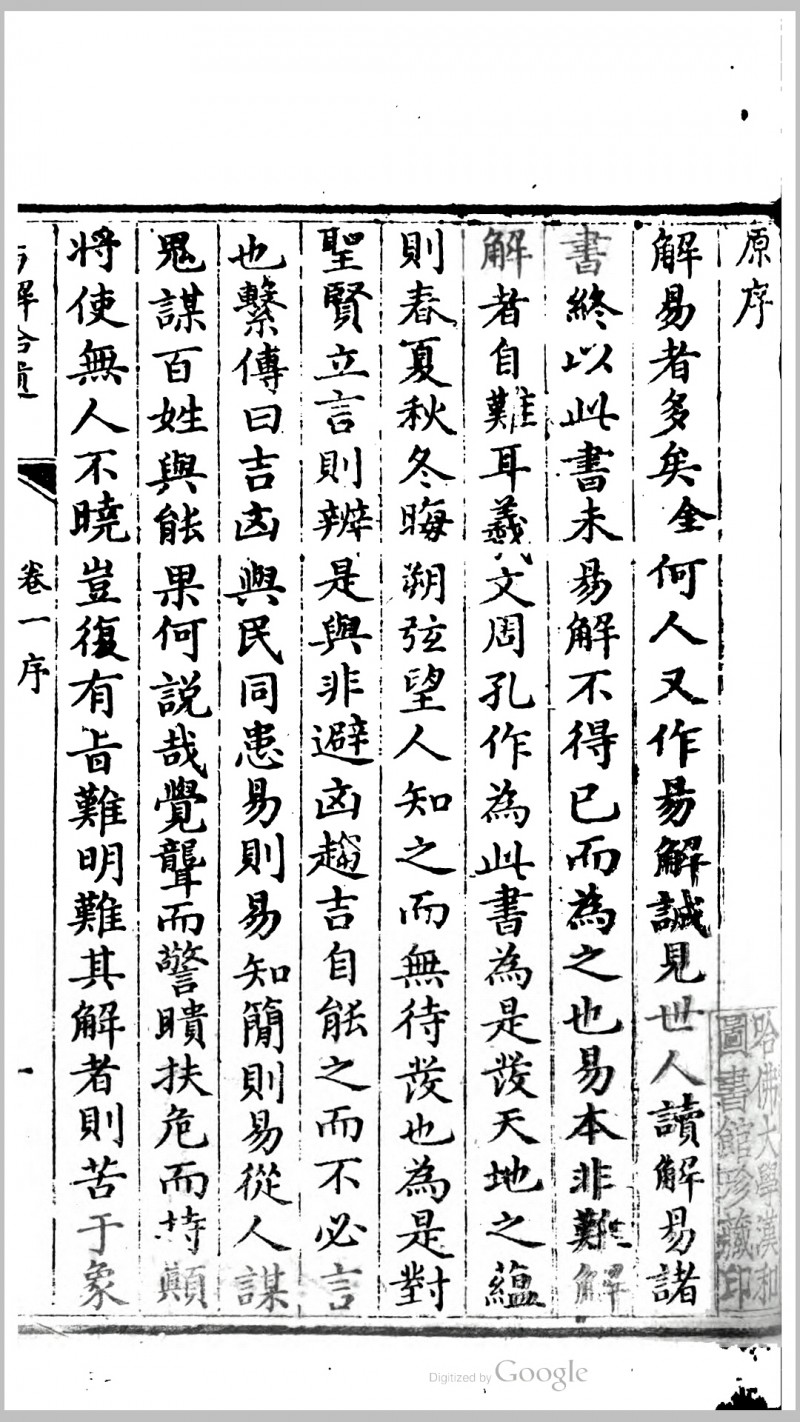 原序
解易者多矣仝何人又作易解誠見世人讀解易諸
書終以此書未易解不得已而為之也易本非難解
解者自難耳羲文周孔作為此書為是發天地之蘊
則春夏秋冬晦朔弦望人知之而無待發也為是對
聖賢立言則辨是與非避凶趨吉自能之而不必言
也繫傳曰吉凶與民同患易則易知簡則易從人謀
鬼謀百姓與能果何說哉覺聾而警瞶扶危而持顛
將使無人不曉豈復有旨難明難其解者則苦于象
卷一序
哈佛大學漢和
圖書館珍藏印
Digitized by Google